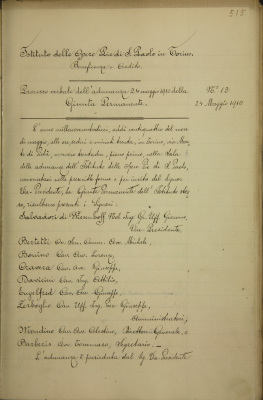 515
Istituto delle Opere Pie di S. Paolo in Torino.
Beneficenza e Credito.
Processo verbale dell'adunanza 24 maggio 1910 della
Giunta Permanente.
N.° 13
24 Maggio 1910
L'anno millenovecentodieci, addì ventiquattro del mese
di maggio, alle ore sedici e minuti trenta, in Torino, via Mon-
te di Pietà, numero trentadue, piano primo, nella Sala
delle adunanze dell'Istituto delle Opere Pie di S. Paolo,
convocatasi nelle prescritte forme e per invito del Signor
Vice Presidente, la Giunta Permanente dell'Istituto stes-
so, risultano presenti i Signori:
Salvadori di Wiesenhoff Nob. Ing. Gr. Uff. Giacomo,
Vice Presidente
Bertetti Cr. Avv. Comm. Michele,
Bonino Cav. Avv. Lorenzo,
Cravera Cav. Avv. Giuseppe,
Davicini Cav. Ing. Attilio,
Engelfred Cav. Avv. Giuseppe,
Zerboglio Cav. Uff. Ing. Cav. Giuseppe,
Amministratori,
Cav. Avv. Celestino, Direttore Generale, e
Barberis Avv. Tommaso, Segretario. —
L'adunanza è presieduta dal Sig. Vice Presidente